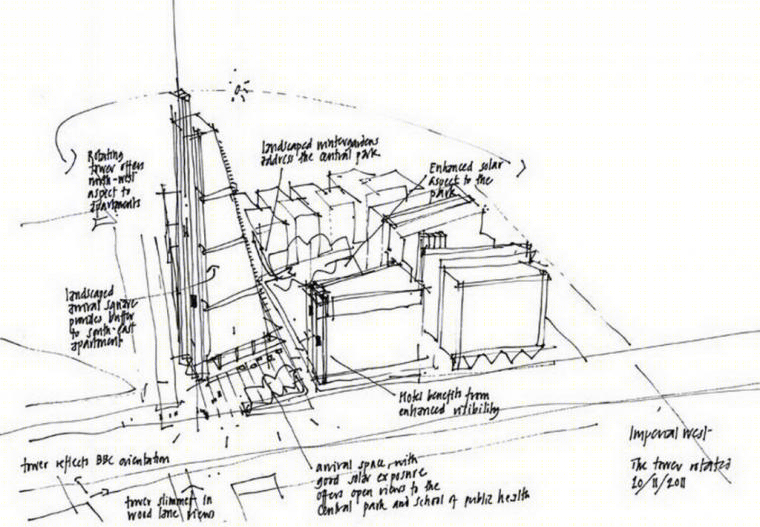 landscaped wintergardens
address the central park
Enhanced solar
aspect to the
park
Rotating
tower offers
north-west
aspect to
apartments
landscaped
arrival square
provides buffer
to south-east
apartment
Hotel benefits from
enhanced visibility
Imperial West-
The tower rotated
20/11/2011
tower reflects BBC orientation
tower slimmer in
wood lane views
arrival space, with
good solar exposure
offers open views to the
central park and school of public health